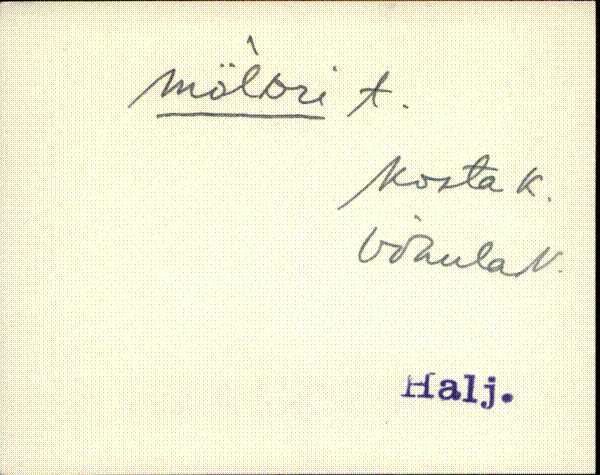 mölˋdri t.
Kosta k.
Võhula v.
Halj.